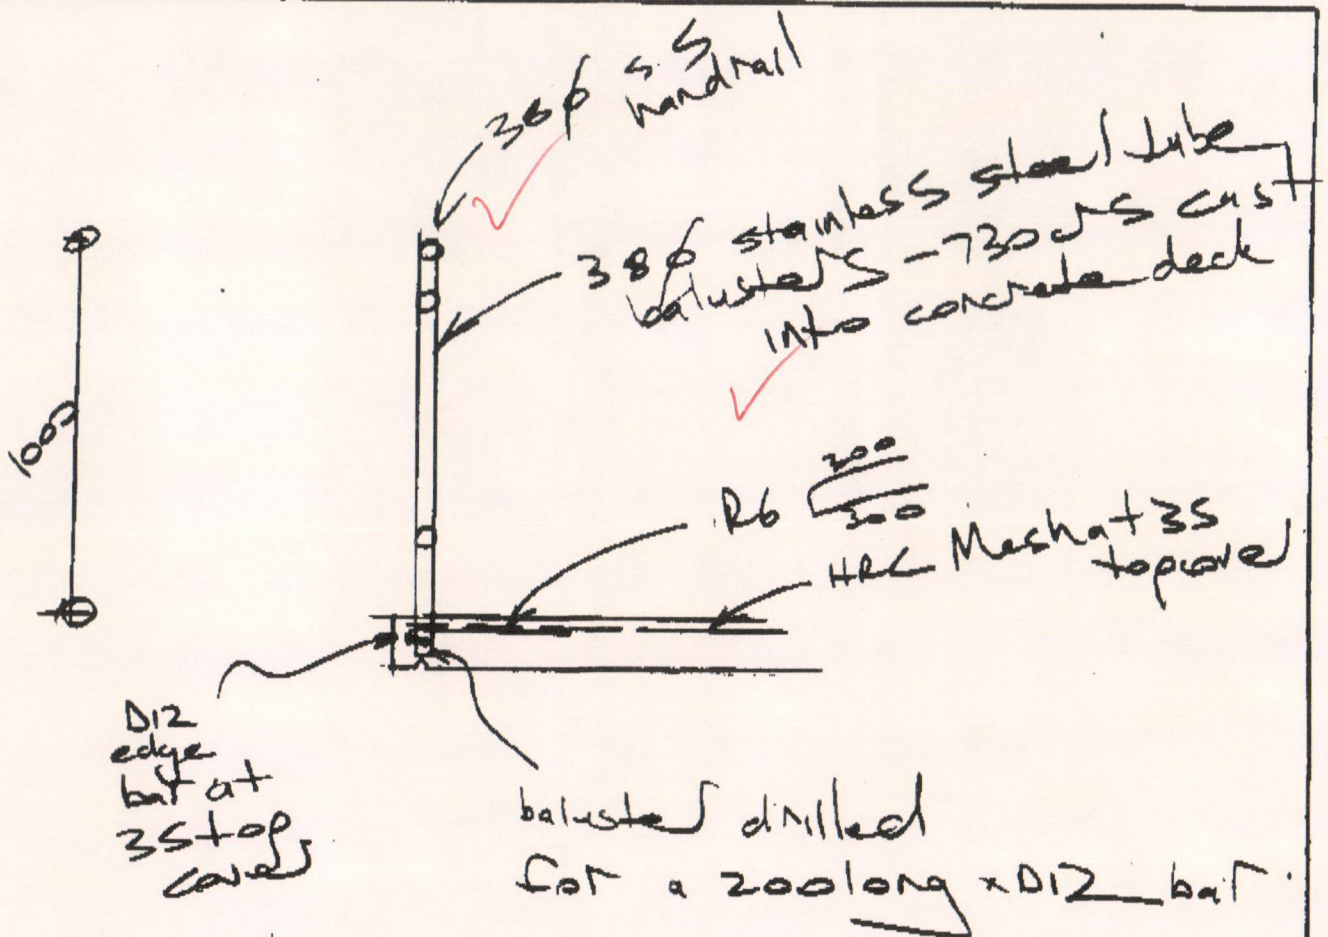 38ø s.s
handrail
38ø stainless steel tube
balusters - 730 crs cast
into concrete deck
1000
R6 200
300
HRC Mesh at 35
topcover
D12
edge
bar at
35 top
cover
baluster drilled
for a 200 long x D12 bar.